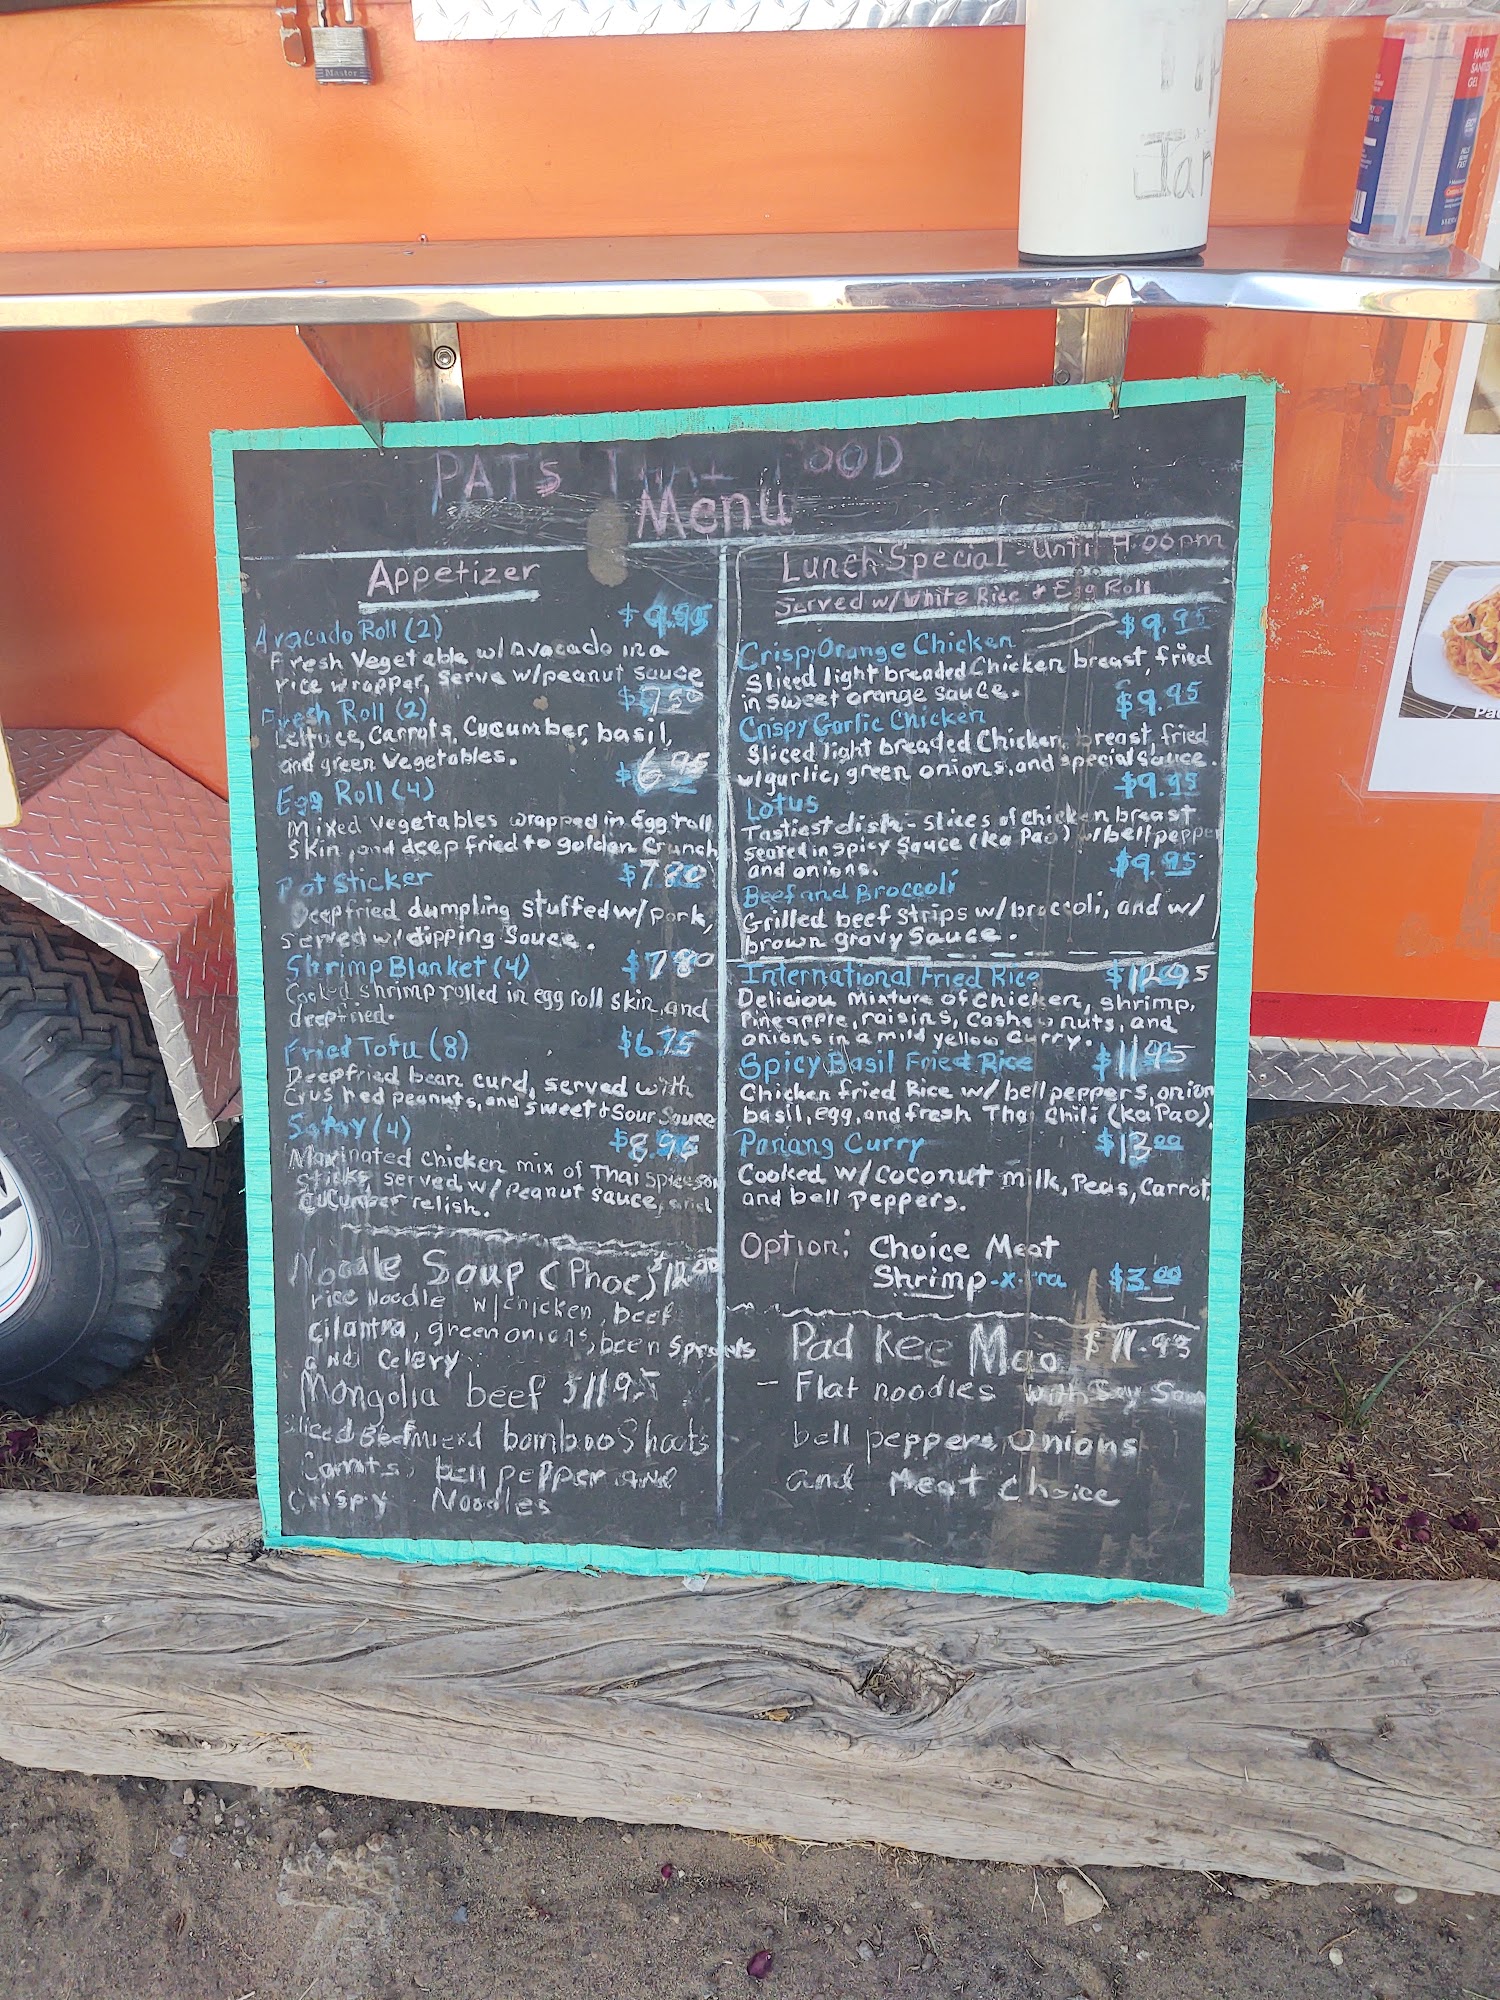 Master
Jar
HAND
SANITIZER
GEL
PAT'S THAI FOOD
Menu
Appetizer
Avacado Roll (2) $9.95
Fresh Vegetable w/ Avocado in a
rice wrapper, serve w/peanut sauce
Fresh Roll (2) $7.50
Lettuce, Carrots, Cucumber, basil,
and green Vegetables.
Egg Roll (4) $6.95
Mixed Vegetables wrapped in Egg roll
Skin, and deep fried to golden Crunch
Pot Sticker $7.80
Deepfried dumpling stuffed w/ pork,
served w/dipping Sauce.
Shrimp Blanket (4) $7.80
Cooked shrimp rolled in egg roll skin, and
deepfried.
Fried Tofu (8) $6.75
Deepfried bean curd, served with
Crushed peanuts, and sweet & Sour Sauce
Satay (4) $8.95
Marinated chicken mix of Thai spices on
Sticks, served w/ Peanut sauce, and
cucumber relish.
Noodle Soup (Phoe) $12.00
rice Noodle w/chicken, beef
cilantra, green onions, been Sprouts
and Celery
Mongolia beef $11.95
Sliced Beef mixed bamboo Shoots
Carrots, bell pepper and
Crispy Noodles
Lunch Special - Until 4:00pm
Served w/ White Rice & Egg Roll
Crispy Orange Chicken $9.95
Sliced light breaded Chicken breast, fried
in sweet orange sauce.
Crispy Garlic Chicken $9.95
Sliced light breaded Chicken breast, fried
w/garlic, green onions, and special sauce.
Lotus $9.95
Tastiest dish - Slices of chicken breast
seared in spicy Sauce (Ka Pao) w/bell pepper
and onions.
Beef and Broccoli $9.95
Grilled beef strips w/ broccoli, and w/
brown gravy Sauce.
International Fried Rice $12.95
Deliciou Mixture of chicken, shrimp,
Pineapple, raisins, Cashew nuts, and
onions in a mild yellow curry.
Spicy Basil Fried Rice $11.95
Chicken fried Rice w/ bell peppers, onion
basil, egg, and fresh Thai Chili (Ka Pao).
Panang Curry $13.00
Cooked w/ Coconut milk, Peas, Carrot,
and bell Peppers.
Option: Choice Meat
Shrimp -x-tra $3.00
Pad Kee Mao $11.95
- Flat noodles with Soy Sauce
bell peppers, Onions
and Meat Choice